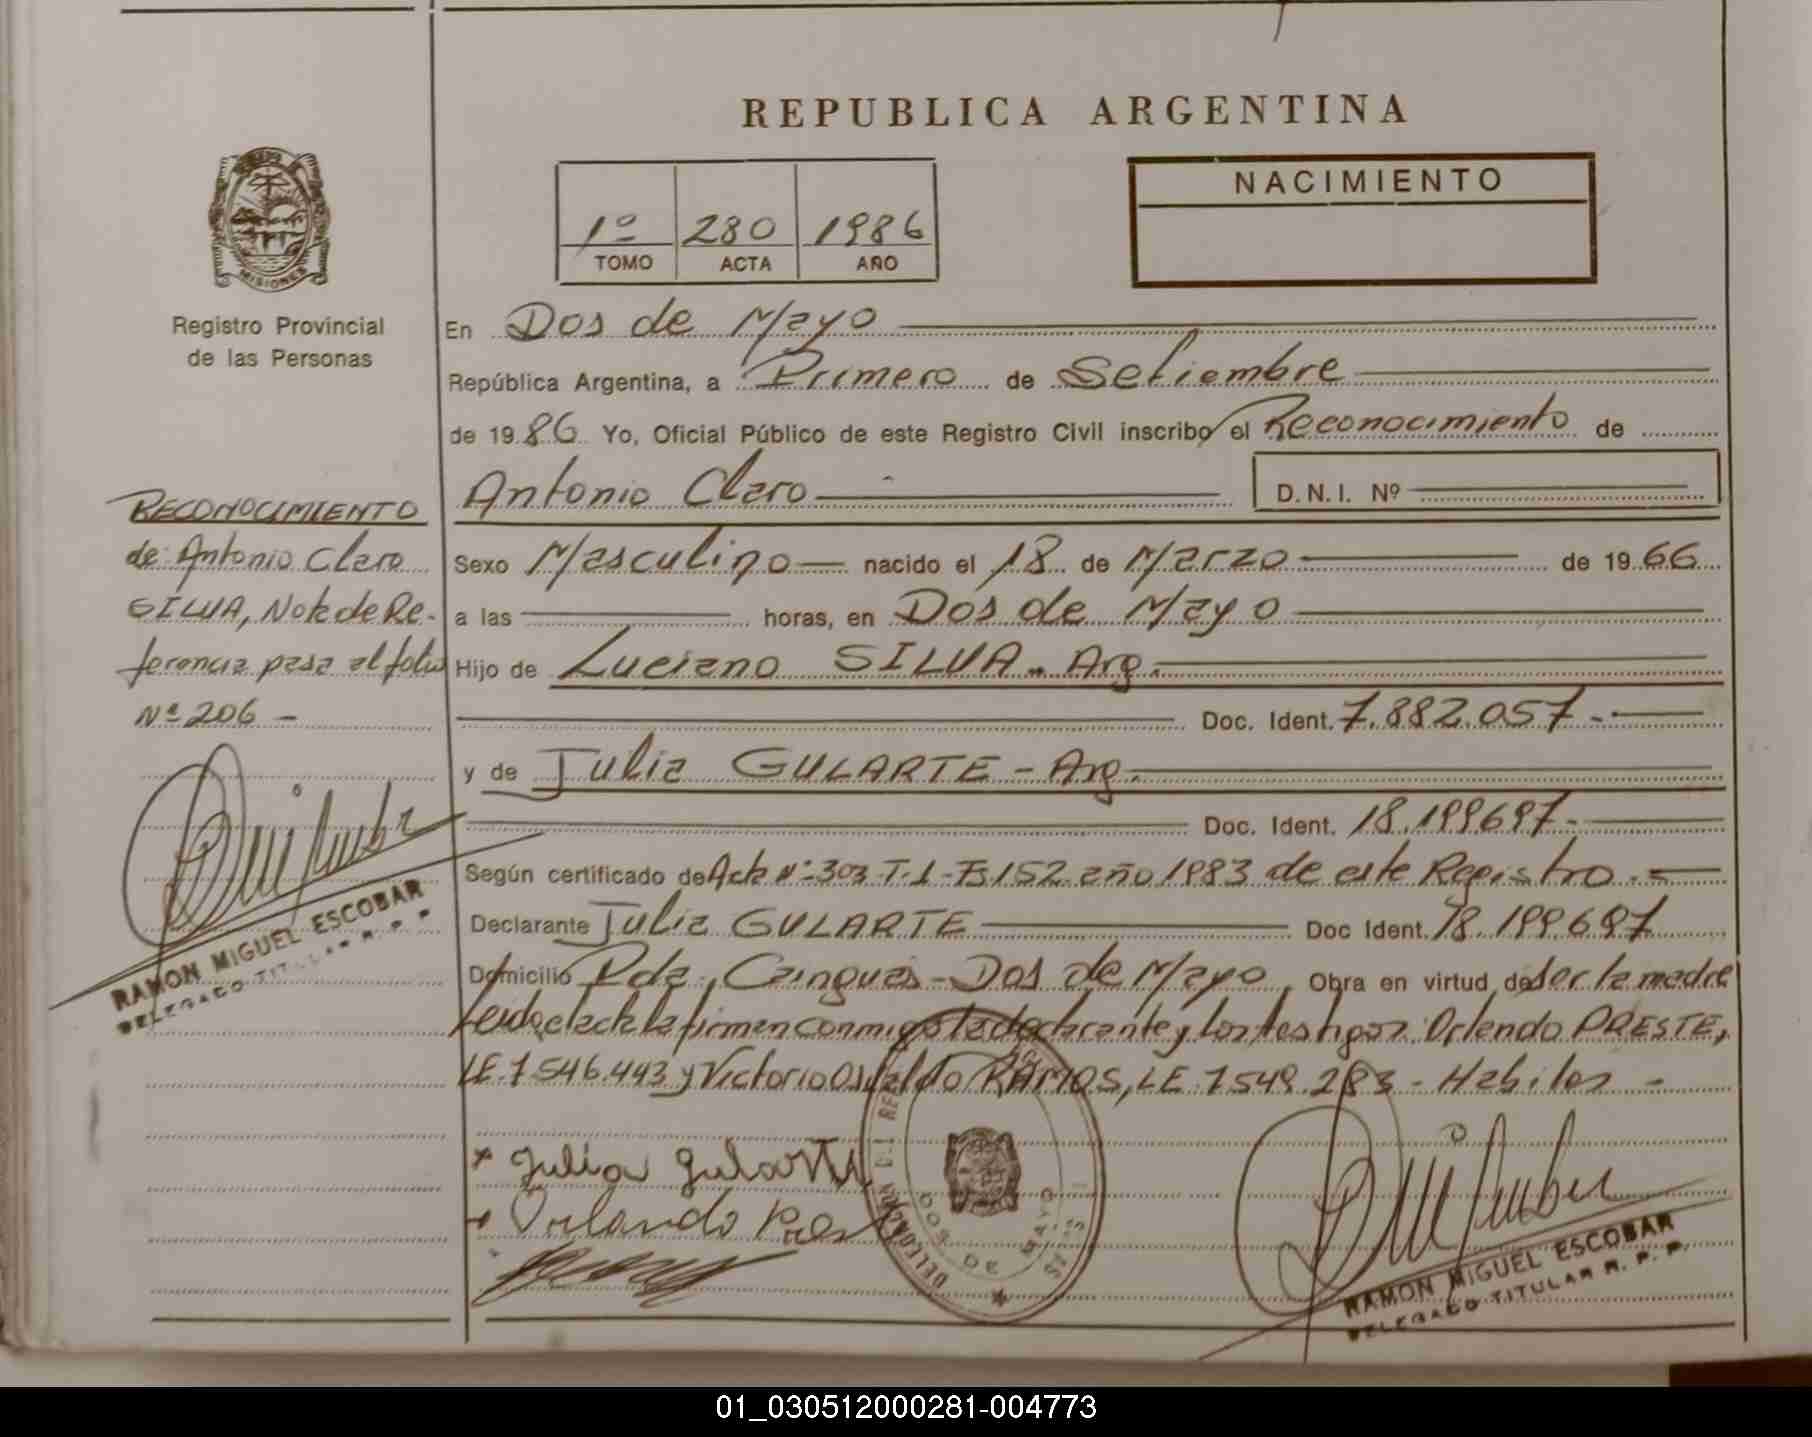 REPUBLICA ARGENTINA
1º 280 1986
TOMO ACTA AÑO
NACIMIENTO
MISIONES
Registro Provincial
de las Personas
En Dos de Mayo
República Argentina, a Primero de Setiembre
de 1986 Yo, Oficial Público de este Registro Civil inscribo el Reconocimiento de
Antonio Claro D.N.I. Nº
Sexo Masculino nacido el 18 de Marzo de 1966
a las horas, en Dos de Mayo
Hijo de Luciano SILVA - Arg.
Doc. Ident. 7.882.057 -
y de Julia GULARTE - Arg.
Doc. Ident. 18.199697 -
Según certificado de Acta Nº 303-T-1-Fs 152 año 1983 de este Registro. -
Declarante Julia GULARTE Doc Ident. 18.199.697
Domicilio Pda. Cainguás - Dos de Mayo Obra en virtud de ser la madre
Leida el acta la firman conmigo la declarante y los testigos: Orlando PRESTE,
LE. 7546.443 y Victorio Osvaldo RAMOS, LE 7549.283 - Habiles -
RECONOCIMIENTO
de Antonio Claro
SILVA, Nota de Re-
ferencia pasa al folio
Nº 206 -
RAMON MIGUEL ESCOBAR
DELEGADO TITULAR R. P. P.
x Julia Gularte
Orlando
DELEGACION DEL
DOS DE MAYO
RAMON MIGUEL ESCOBAR
DELEGADO TITULAR R. P. P.
01_030512000281-004773